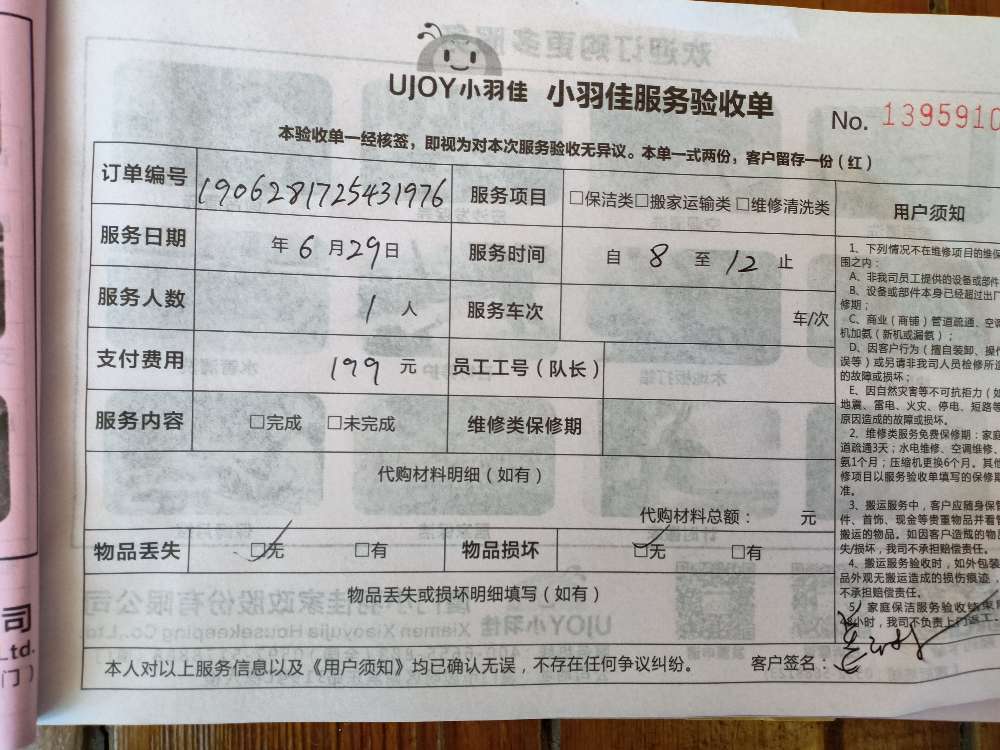 UJOY小羽佳 小羽佳服务验收单
No. 1395910
本验收单一经核签，即视为对本次服务验收无异议。本单一式两份，客户留存一份（红）
订单编号 1906281725431976 服务项目 □保洁类□搬家运输类 □维修清洗类
服务日期 年 6 月 29 日 服务时间 自 8 至 12 止
服务人数 1 人 服务车次 车/次
支付费用 199 元 员工工号（队长）
服务内容 □完成 □未完成 维修类保修期
代购材料明细（如有）
代购材料总额： 元
物品丢失 □无 □有 物品损坏 □无 □有
物品丢失或损坏明细填写（如有）
本人对以上服务信息以及《用户须知》均已确认无误，不存在任何争议纠纷。 客户签名：
用户须知
1、下列情况不在维修项目的维保
围之内：
A、非我司员工提供的设备或部件
B、设备或部件本身已经超过出厂
修期；
C、商业（商铺）管道疏通、空调
机加氨（新机或漏氨）；
D、因客户行为（擅自装卸、操作
误等）或另请非我司人员检修所造
的故障或损坏；
E、因自然灾害等不可抗拒力（如
地震、雷电、火灾、停电、短路等
原因造成的故障或损坏。
2、维修类服务免费保修期：家庭
道疏通3天；水电维修、空调维修、
氨1个月；压缩机更换6个月。其他
修项目以服务验收单填写的保修期
准。
3、搬运服务中，客户应随身保管
件、首饰、现金等贵重物品并看管
搬运的物品。如因客户造成的物品
失/损坏，我司不承担赔偿责任。
4、搬运服务验收时，如外包装
品外观无搬运造成的损伤痕迹，
不承担赔偿责任。
5、家庭保洁服务验收结束
48小时，我司不负责上门返工。
司
Ltd.
门）